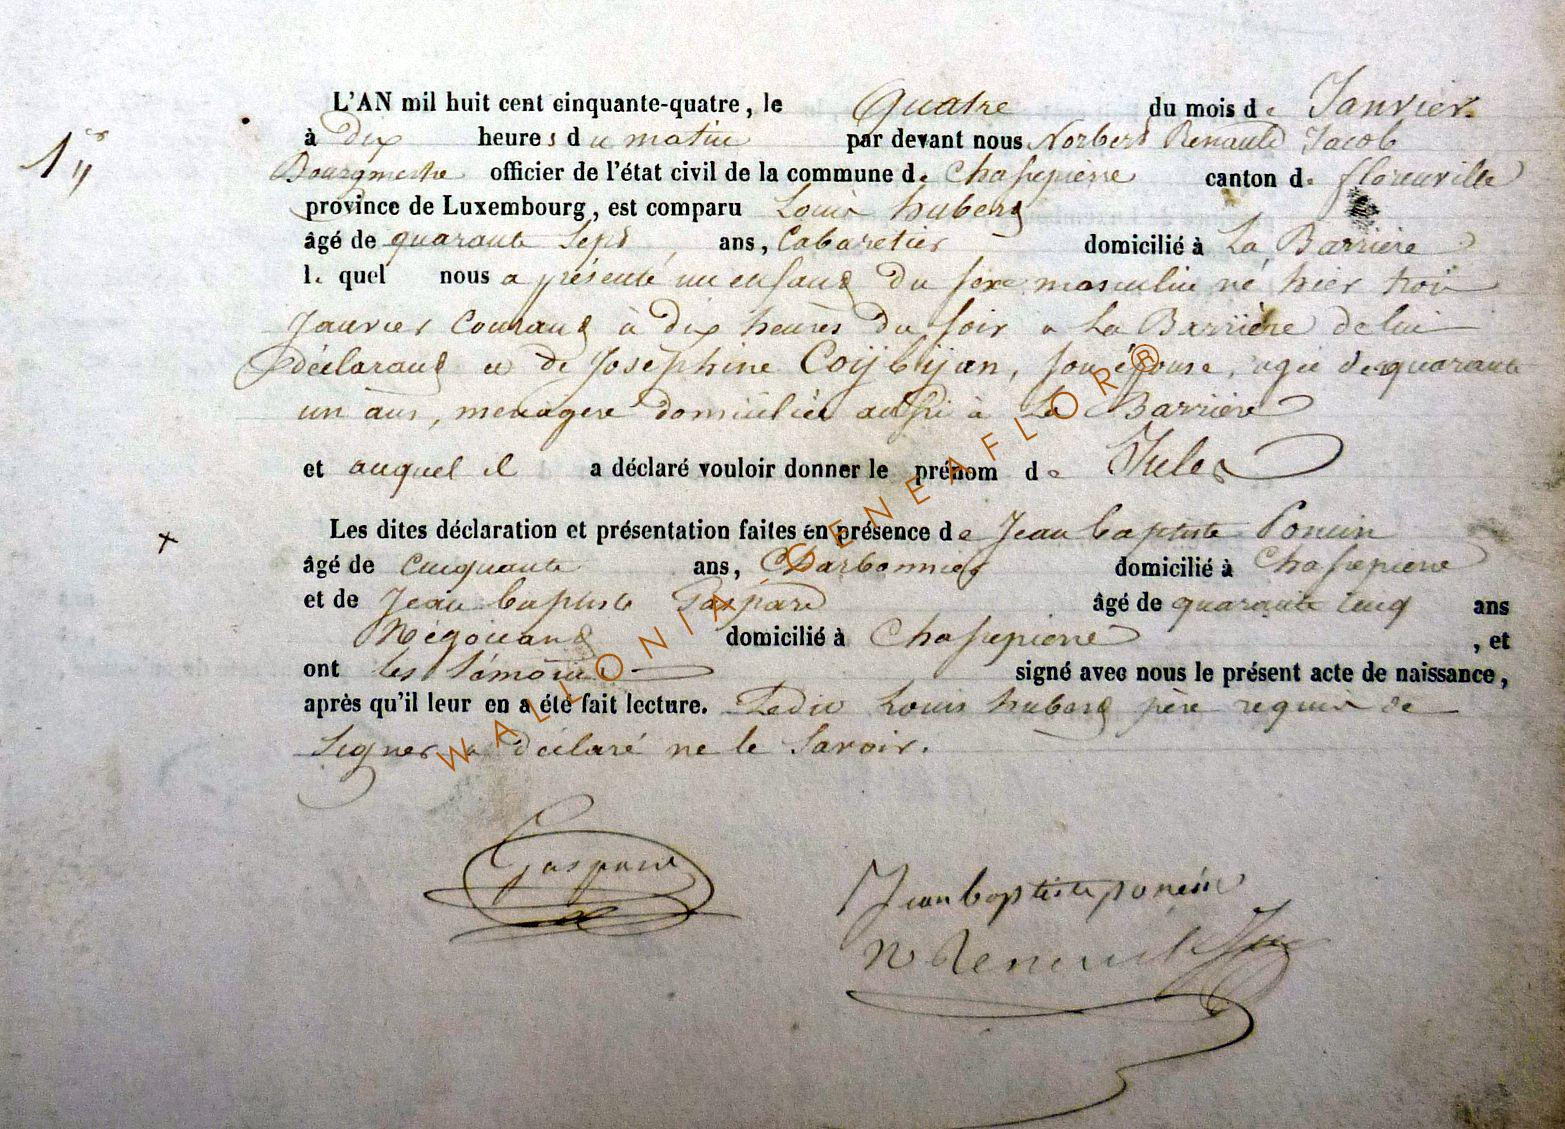 L'AN mil huit cent cinquante-quatre, le Quatre du mois de Janvier.
1er
à dix heures du matin par devant nous Norbert Renauld Jacob
Bourgmestre officier de l'état civil de la commune de Chassepierre canton de florenville
province de Luxembourg, est comparu Louis hubert
âgé de quarante Sept ans, Cabaretier domicilié à La Barrière
le quel nous a présenté un enfant du sexe masculin né hier trois
Janvier Courant à dix heures du soir à La Barrière de lui
déclarant et de Joséphine Coijbijan, son épouse, agée de quarante
un ans, menagere domiciliée aussi à La Barrière
et auquel il a déclaré vouloir donner le prénom de Jules
Les dites déclaration et présentation faites en présence de Jean baptiste Poncin
âgé de Cinquante ans, Charbonnier domicilié à Chassepierre
et de Jean baptiste Gaspard âgé de quarante cinq ans
Négociant domicilié à Chassepierre , et
ont les témoins signé avec nous le présent acte de naissance,
après qu'il leur en a été fait lecture. Ledit Louis hubert père requis de
signer a déclaré ne le savoir.
WALLONIA GENEAFLOR®
Gaspard
Jean baptiste poncin
N Renauld